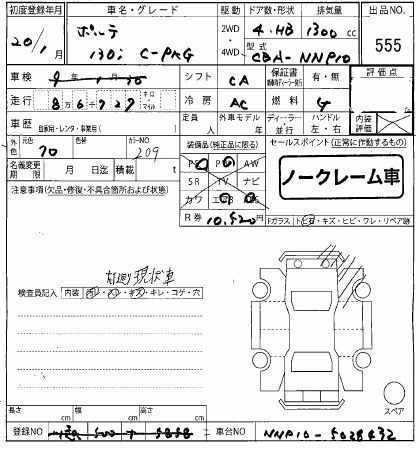 初度登録年月 車名・グレード 駆動 ドア数・形状 排気量 出品NO.
20/1月 ポルテ 2WD・4WD 4・HB 1300cc 555
130i C-PKG 型式 CBA-NNP10
車検 年 月 シフト CA 保証書 有・無 評価点
走行 8万6千727 キロ マイル 冷房 AC 燃料 G
車歴 自家用・レンタ・事業用( ) 定員 人 外車モデル 年 ディーラー・並行 ハンドル 左・右 内装評価
外色 元色 70 色替 カラーNO 209 装備品(純正品に限る) セールスポイント(正常に作動するもの)
名義変更期限 月 日迄 積載 t
注意事項(欠品・修復・不具合箇所および状態)
AW
SR TV ナビ
カワ
ノークレーム車
R券 10,520円 Fガラス トビ石・キズ・ヒビ・ワレ・リペア跡
現状車
検査員記入 内装 ・キレ・コゲ・穴
スペア
長さ cm 幅 cm 高さ cm
登録NO 500 5858 車台NO NNP10-5028432